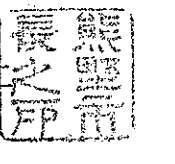 熊野市
長之印